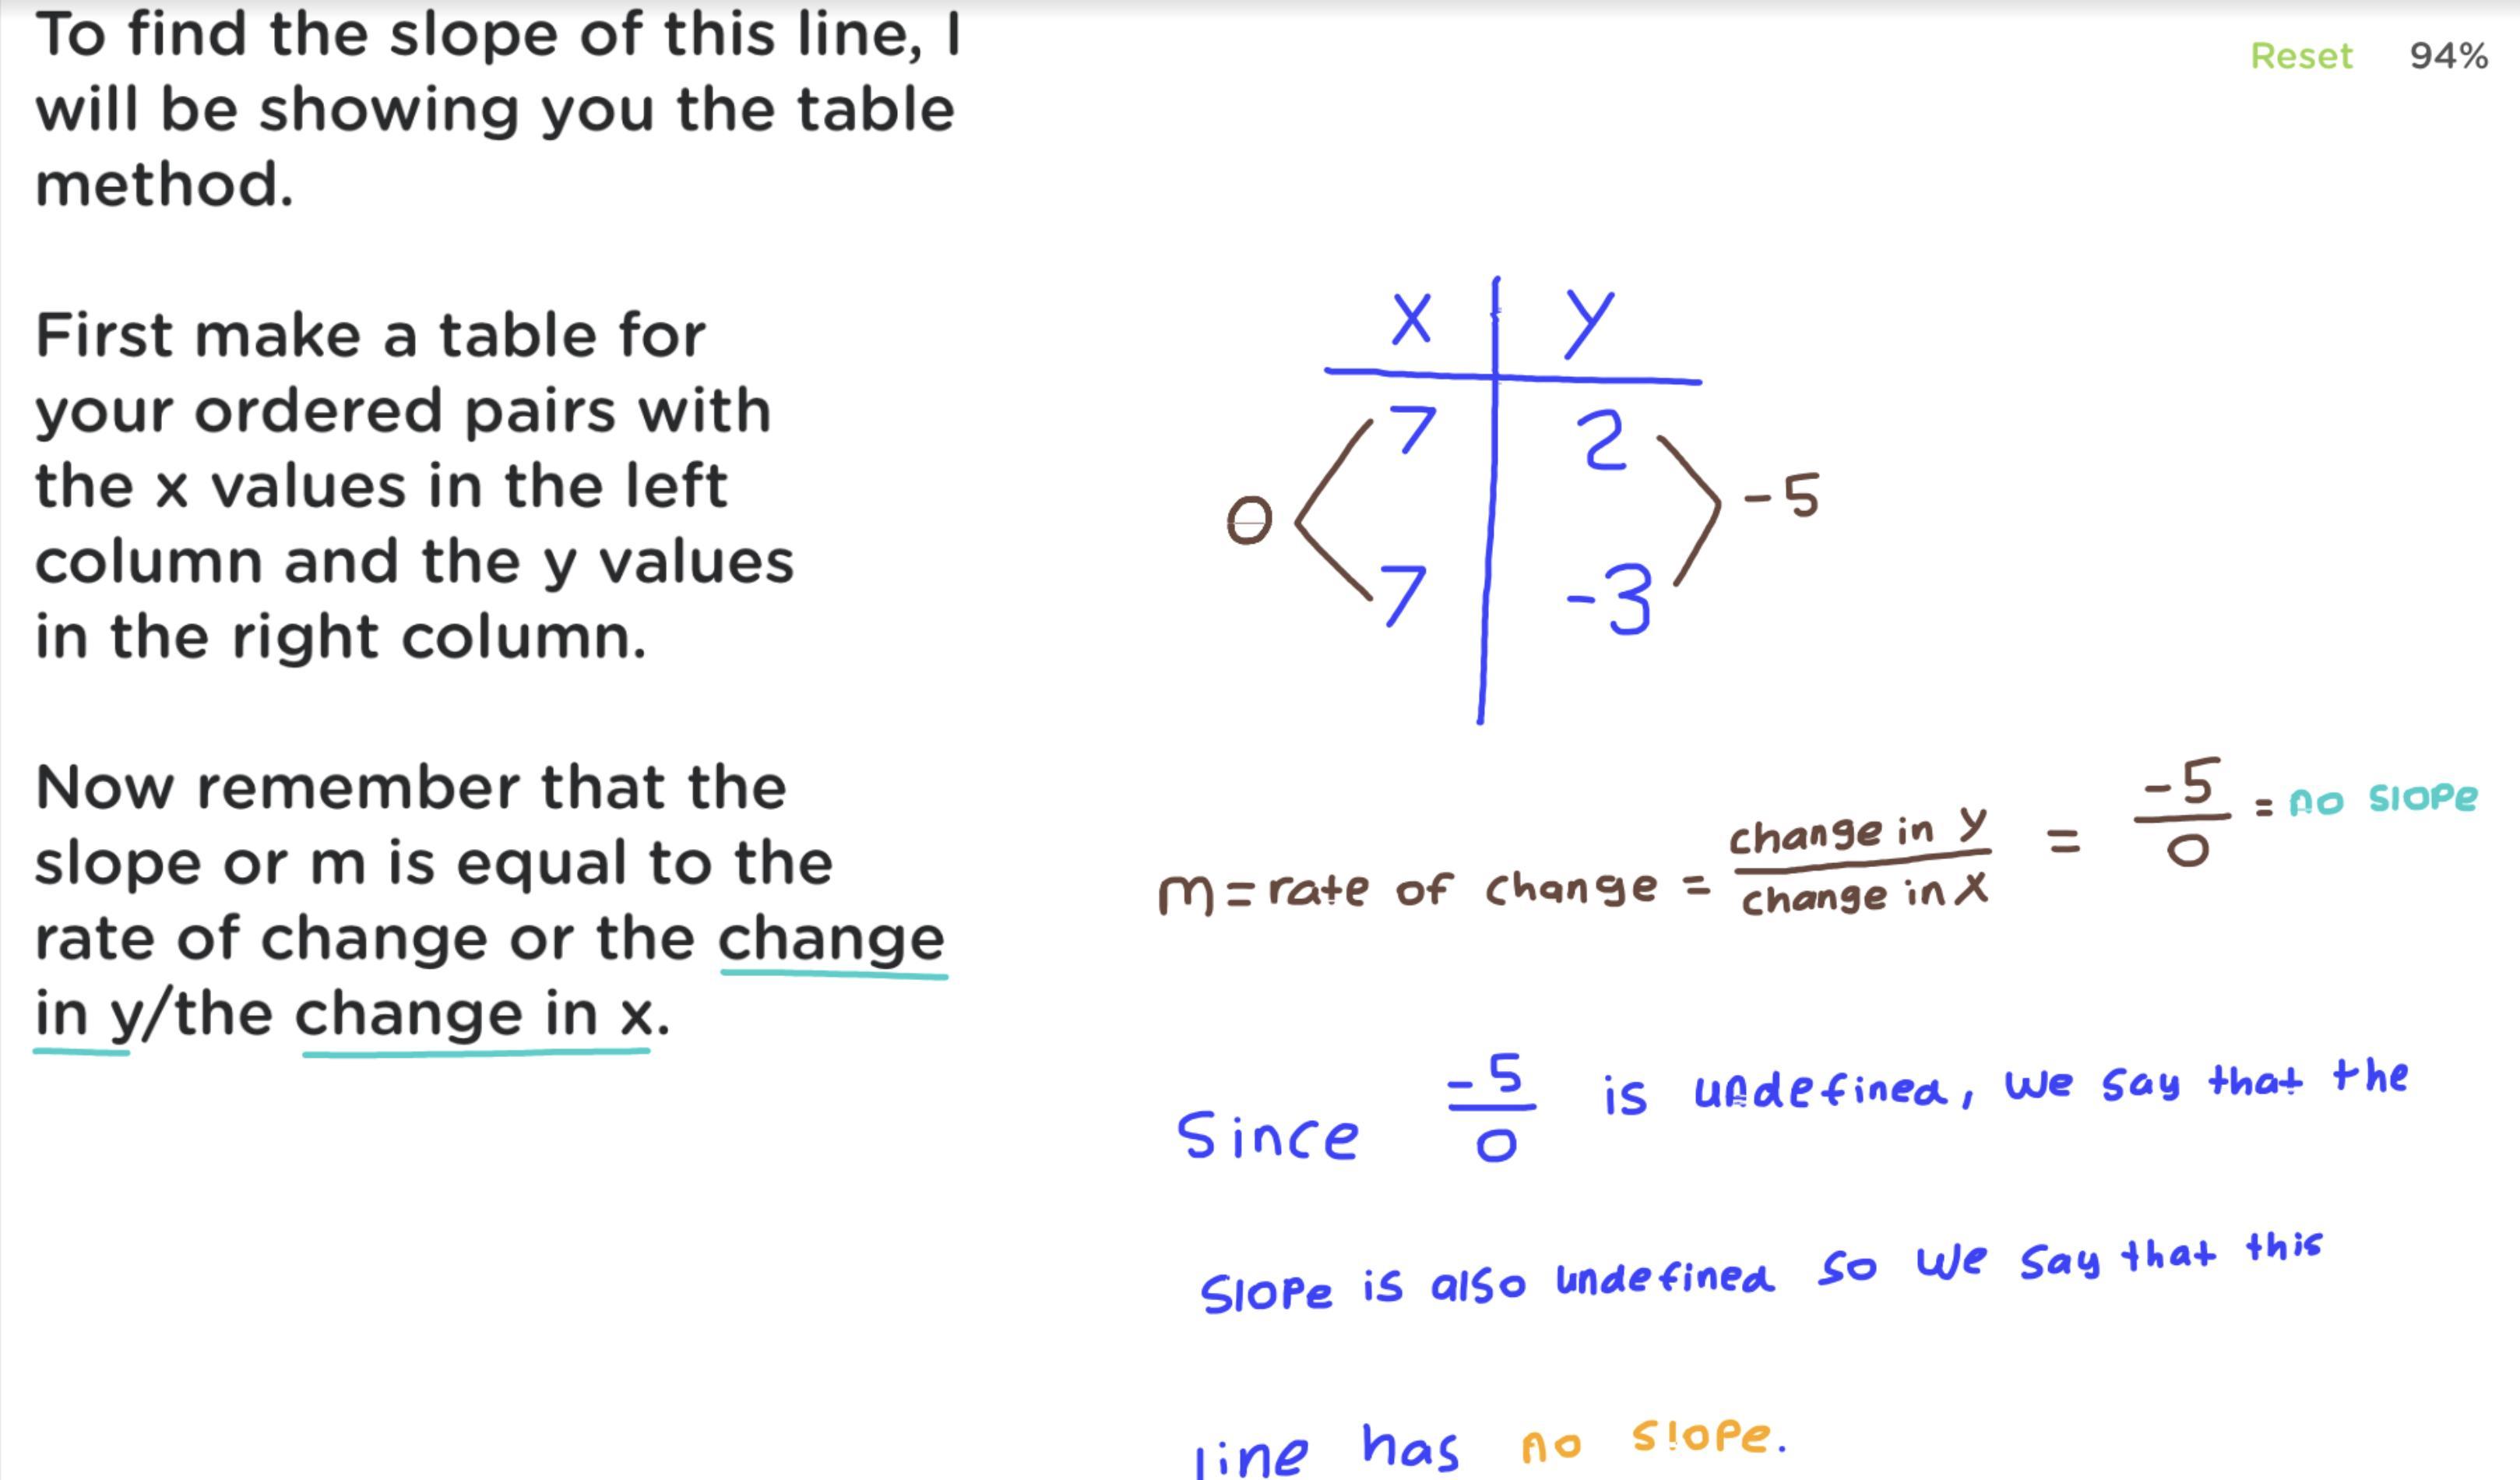 To find the slope of this line, I
will be showing you the table
method.
First make a table for
your ordered pairs with
the x values in the left
column and the y values
in the right column.
Now remember that the
slope or m is equal to the
rate of change or the change
in y/the change in x.
Reset 94%
x y
7 2
0 -5
7 -3
m = rate of change = change in y / change in x = -5/0 = no slope
Since -5/0 is undefined, we say that the
slope is also undefined so we say that this
line has no slope.